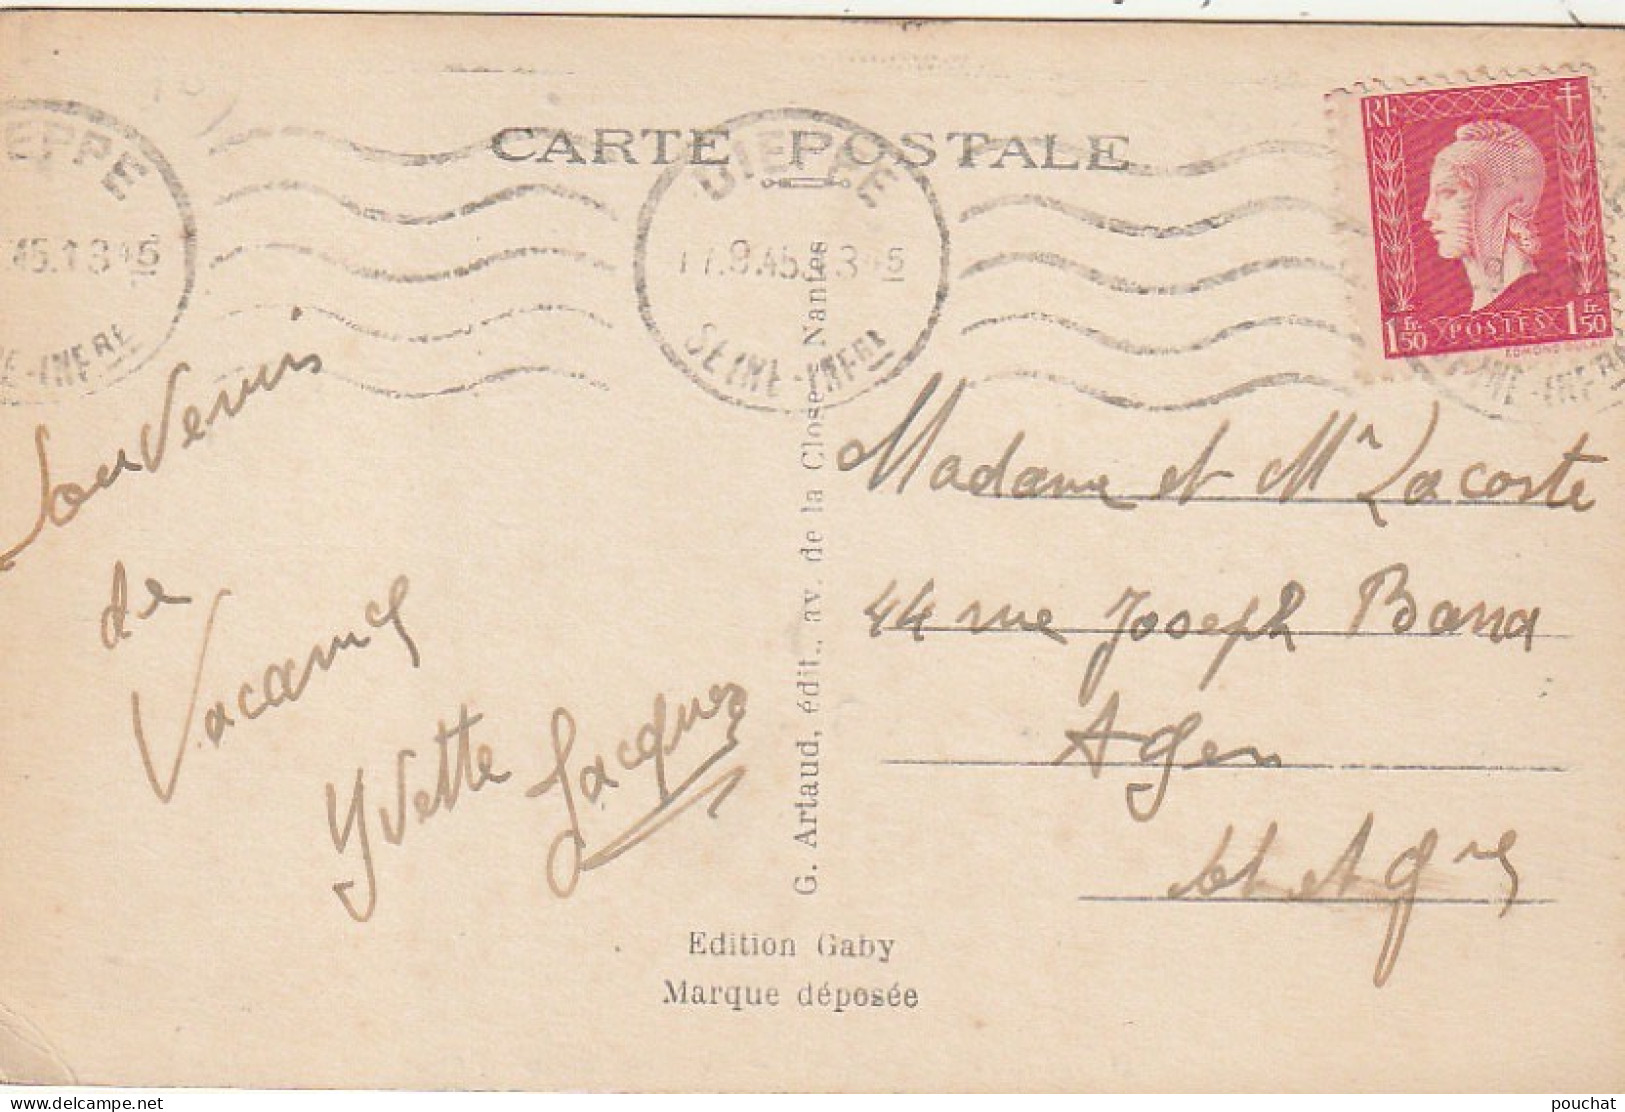 CARTE POSTALE
DIEPPE
17.9.45 13 45
SEINE-INFRE
EPPE
.45.13 45
NE-INFRE
RF
1Fr.50 POSTES 1Fr.50
INE-INFRE
Souvenirs
de
Vacances
Yvette Jacques
G. Artaud, édit., av. de la Close, Nantes
Madame et Mr Lacoste
44 rue Joseph Bara
Agen
Lot et Gne
Edition Gaby
Marque déposée
delcampe.net
pouchat